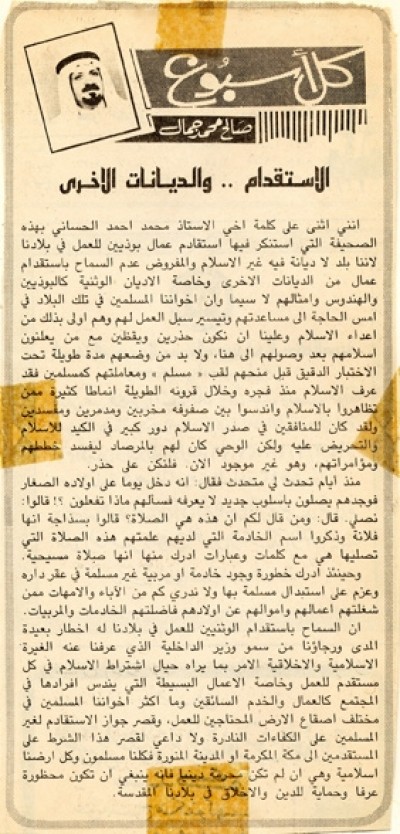 كل أسبوع
صالح محمد جمال
الاستقدام .. والديانات الاخرى
انني اثنى على كلمة اخي الاستاذ محمد احمد الحساني بهذه
الصحيفة التي استنكر فيها استقادم عمال بوذيين للعمل في بلادنا
لاننا بلد لا ديانة فيه غير الاسلام والمفروض عدم السماح باستقدام
عمال من الديانات الاخرى وخاصة الاديان الوثنية كالبوذيين
والهندوس وامثالهم لا سيما وان اخواننا المسلمين في تلك البلاد في
امس الحاجة الى مساعدتهم وتيسير سبل العمل لهم وهم اولى بذلك من
اعداء الاسلام وعلينا ان نكون حذرين ويقظين مع من يعلنون
اسلامهم بعد وصولهم الى هنا، ولا بد من وضعهم مدة طويلة تحت
الاختبار الدقيق قبل منحهم لقب « مسلم » ومعاملتهم كمسلمين فقد
عرف الاسلام منذ فجره وخلال قرونه الطويلة انماطا كثيرة ممن
تظاهروا بالاسلام واندسوا بين صفوفه مخربين ومدمرين ومفسدين
ولقد كان للمنافقين في صدر الاسلام دور كبير في الكيد للاسلام
والتحريض عليه ولكن الوحي كان لهم بالمرصاد ليفسد خططهم
ومؤامراتهم، وهو غير موجود الان. فلنكن على حذر.
منذ أيام تحدث لي متحدث فقال: انه دخل يوما على اولاده الصغار
فوجدهم يصلون باسلوب جديد لا يعرفه فسألهم ماذا تفعلون ؟! قالوا:
نصلي. قال: ومن قال لكم ان هذه هي الصلاة؟ قالوا بسذاجة انها
فلانة وذكروا اسم الخادمة التي لديهم علمتهم هذه الصلاة التي
تصليها هي مع كلمات وعبارات ادرك منها انها صلاة مسيحية.
وحينئذ أدرك خطورة وجود خادمة او مربية غير مسلمة في عقر داره
وعزم على استبدال مسلمة بها ولا ندري كم من الآباء والامهات ممن
شغلتهم اعمالهم واموالهم عن اولادهم فاضلتهم الخادمات والمربيات.
ان السماح باستقدام الوثنيين للعمل في بلادنا له اخطار بعيدة
المدى ورجاؤنا من سمو وزير الداخلية الذي عرفنا عنه الغيرة
الاسلامية والاخلاقية الامر بما يراه حيال اشتراط الاسلام في كل
مستقدم للعمل وخاصة الاعمال البسيطة التي يندس افرادها في
المجتمع كالعمال والخدم السائقين وما اكثر أخواننا المسلمين في
مختلف اصقاع الارض المحتاجين للعمل، وقصر جواز الاستقادم لغير
المسلمين على الكفاءات النادرة ولا داعي لقصر هذا الشرط على
المستقدمين الى مكة المكرمة او المدينة المنورة فكلنا مسلمون وكل ارضنا
اسلامية وهي ان لم تكن محرمة دينيا فانه ينبغي ان تكون محظورة
عرفا وحماية للدين والاخلاق في بلادنا المقدسة.